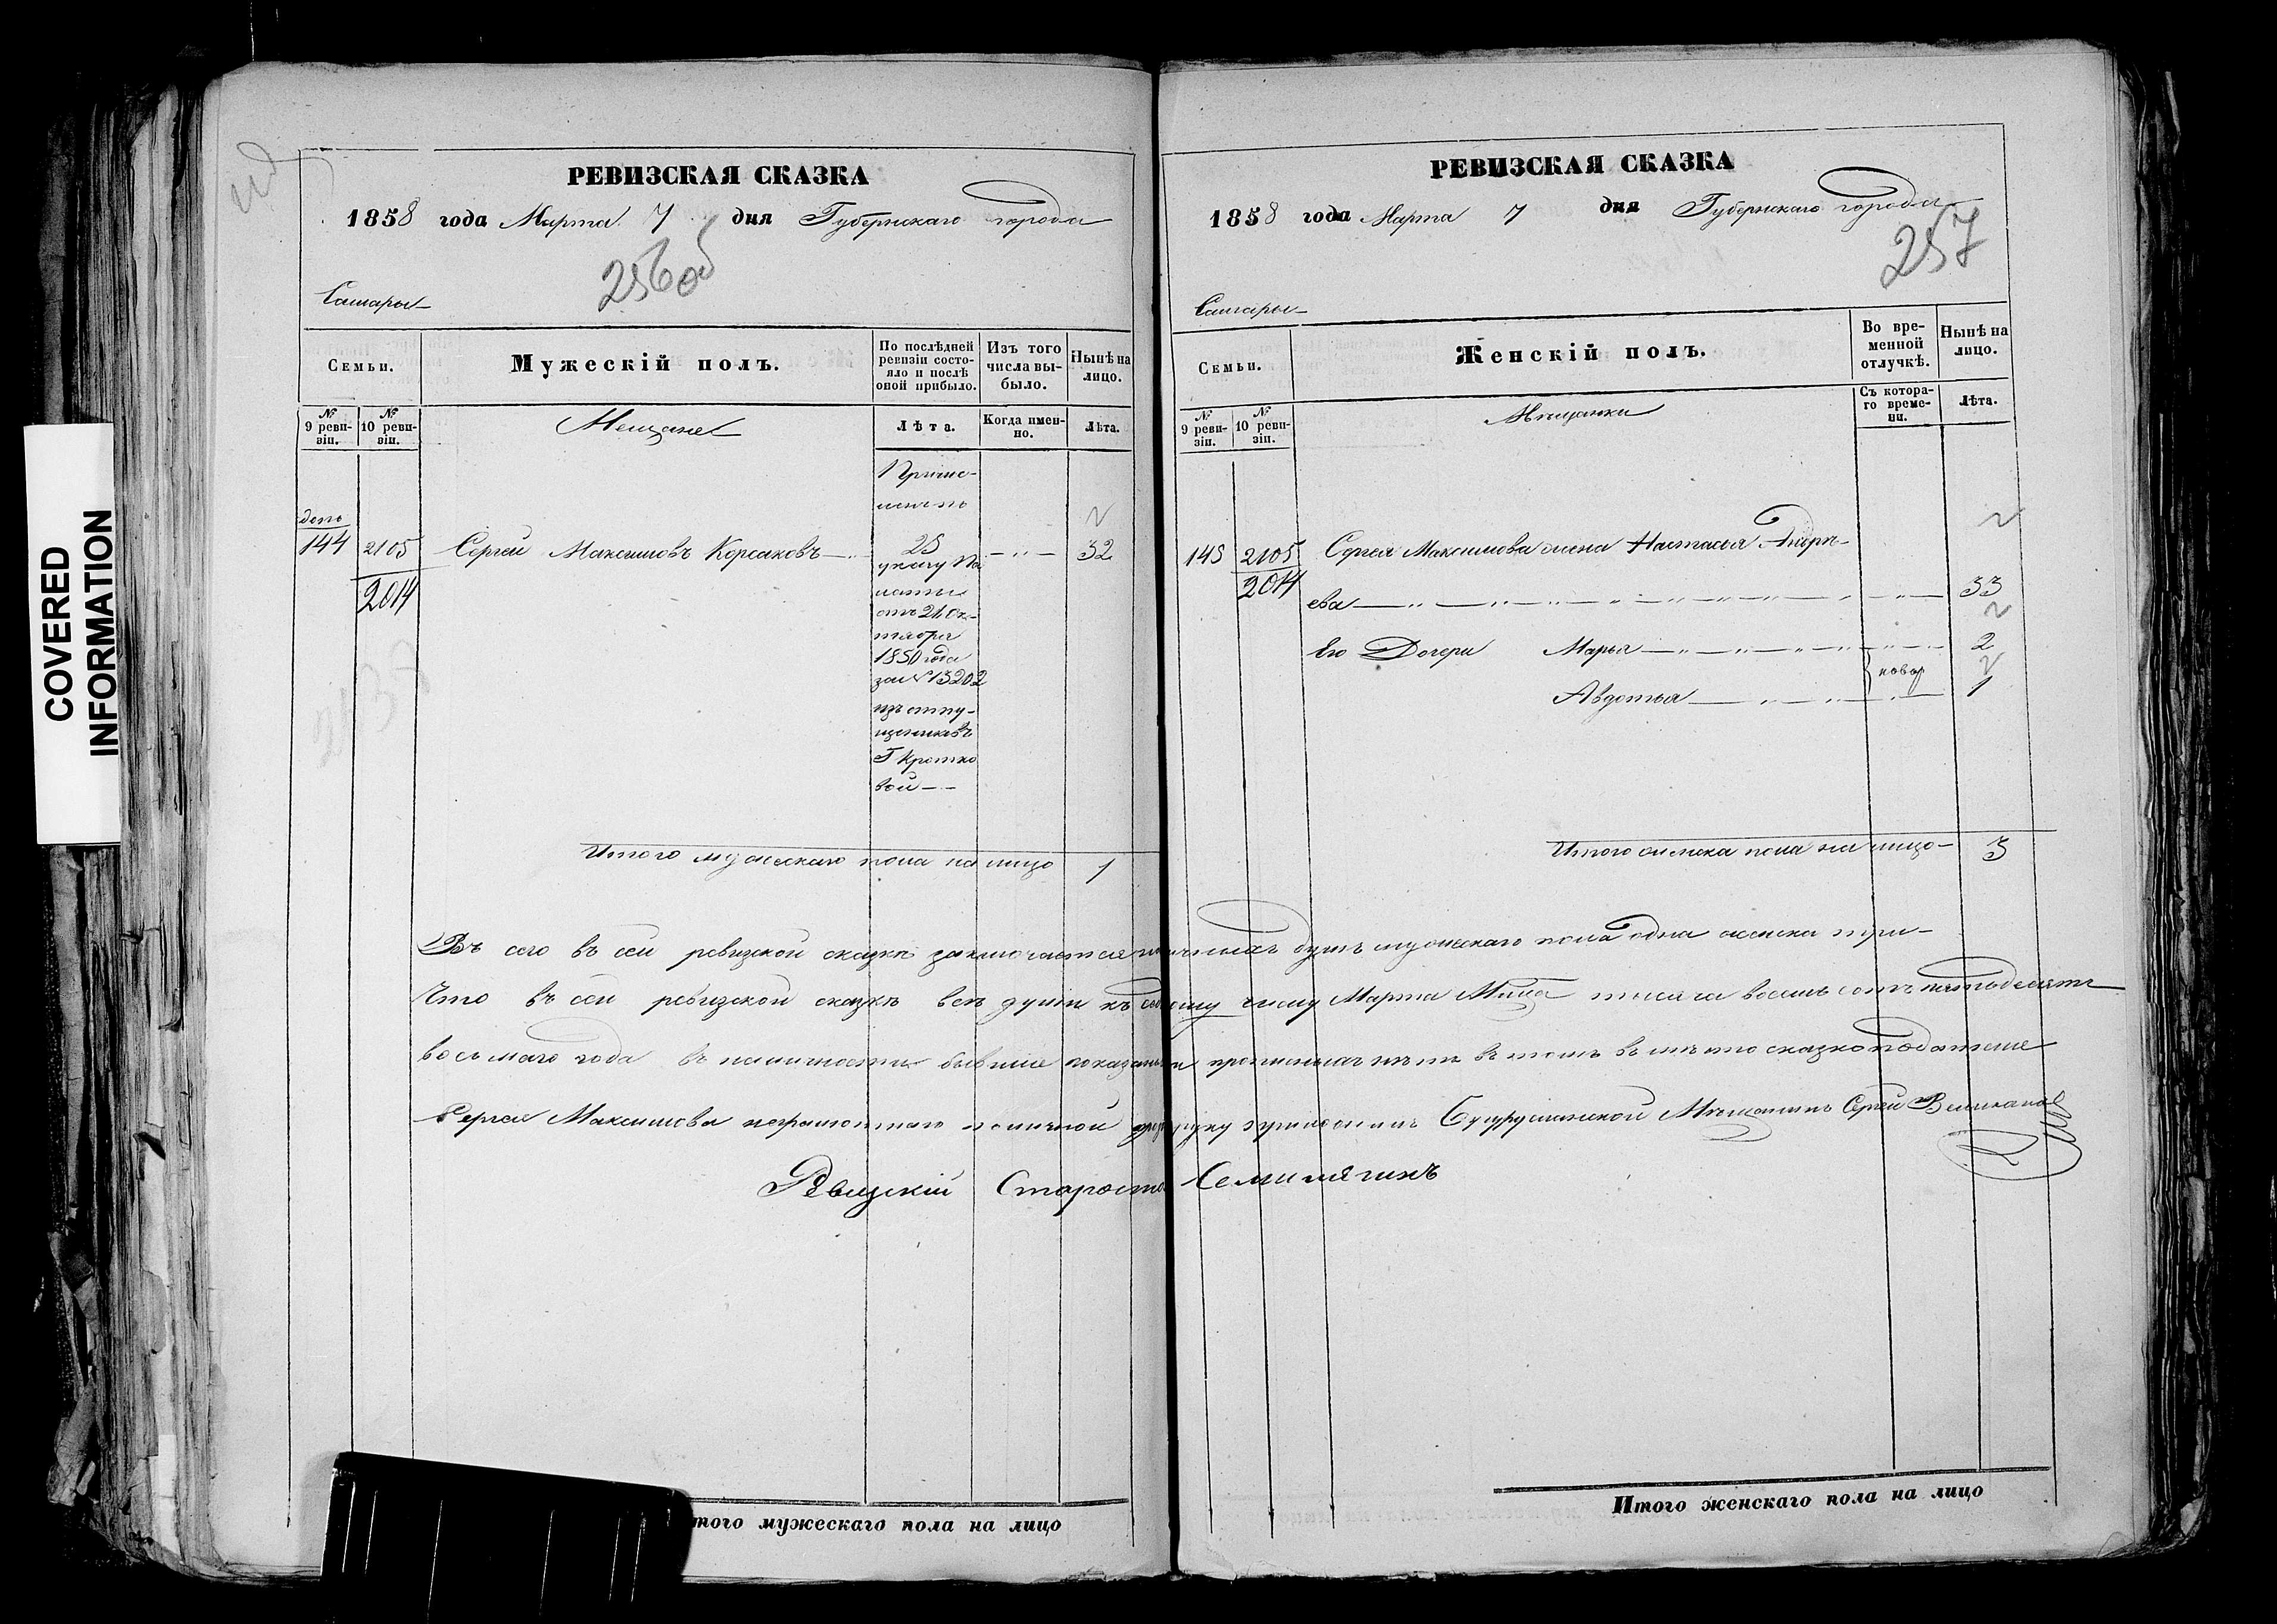 COVERED
INFORMATION
РЕВИЗСКАЯ СКАЗКА
1858 года Марта 7 дня Губернскаго города
256об
Самары
Семьи.
Мужескій полъ.
По послѣдней ревизіи состояло и послѣ оной прибыло.
Изъ того числа выбыло.
Нынѣ на лицо.
№ 9 ревизіи.
№ 10 ревизіи.
Мещане
Лѣта.
Когда именно.
Лѣта.
Причис-
ленъ по
доп
144 2105 Сергей Максимовъ Корсаковъ 25 32
2014
указу Па
латы
отъ 21 Ок-
тября
1850 года
за № 13202
изъ отпу-
щенниковъ
Г Кротко
вой
Итого мужескаго пола на лицо 1
РЕВИЗСКАЯ СКАЗКА
1858 года Марта 7 дня Губернскаго города
257
Самары
Семьи.
Женскій полъ.
Во временной отлучкѣ.
Нынѣ на лицо.
№ 9 ревизіи.
№ 10 ревизіи.
Мѣщанки
Съ котораго времени.
Лѣта.
145 2105 Сергея Максимова жена Настасья Андрѣ-
2014
ева 33
Его Дочери Марья 2
новор
Авдотья 1
Итого женска пола на лицо 3
Въ сей ревизской сказкѣ заключается наличныхъ душъ мужескаго пола одна женска три
Что въ сей ревизской сказкѣ всѣ души къ седьмому числу Марта Мѣца тысяча восемь сотъ пятьдесятъ
восьмаго года въ наличности бывшие показаны и прописныхъ нѣтъ въ томъ вмѣсто сказкоподателя
Сергея Максимова неграмотнаго по личной просьбѣ руку приложилъ Бугурусланской Мѣщанинъ Сергей Великановъ
Ревизскій Староста Семилягинъ
того мужескаго пола на лицо
Итого женскаго пола на лицо